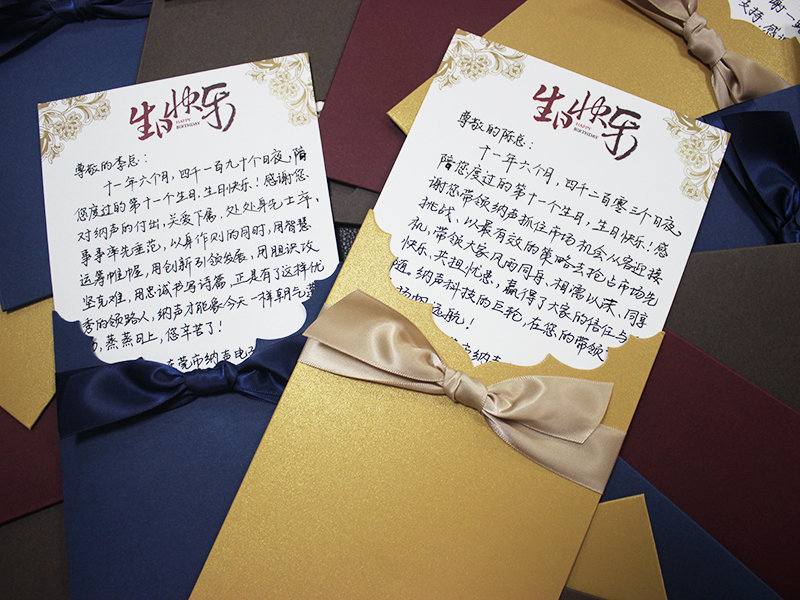 生日快乐
HAPPY
BIRTHDAY
尊敬的李总：
十一年六个月，四千一百九十个日夜，陪
您度过的第十一个生日，生日快乐！感谢您
对纳声的付出，关爱下属，处处身先士卒，
事事率先垂范，以身作则的同时，用智慧
运筹帷幄，用创新引领发展，用胆识攻
坚克难，用忠诚书写诗篇，正是有了这样优
秀的领路人，纳声才能象今天一样朝气蓬
，蒸蒸日上，您辛苦了！
东莞市纳声电子
生日快乐
HAPPY
BIRTHDAY
尊敬的陈总：
十一年六个月，四千二百零三个日夜，
陪您度过的第十一个生日，生日快乐！感
谢您带领纳声抓住市场机会从容迎接
挑战，以最有效的策略去抢占市场先
机，带领大家风雨同舟，相濡以沫，同享
快乐、共担忧患，赢得了大家的信任与
随，纳声科技的巨轮，在您的带领
扬帆远航！
市纳声
谢一路
支持，感